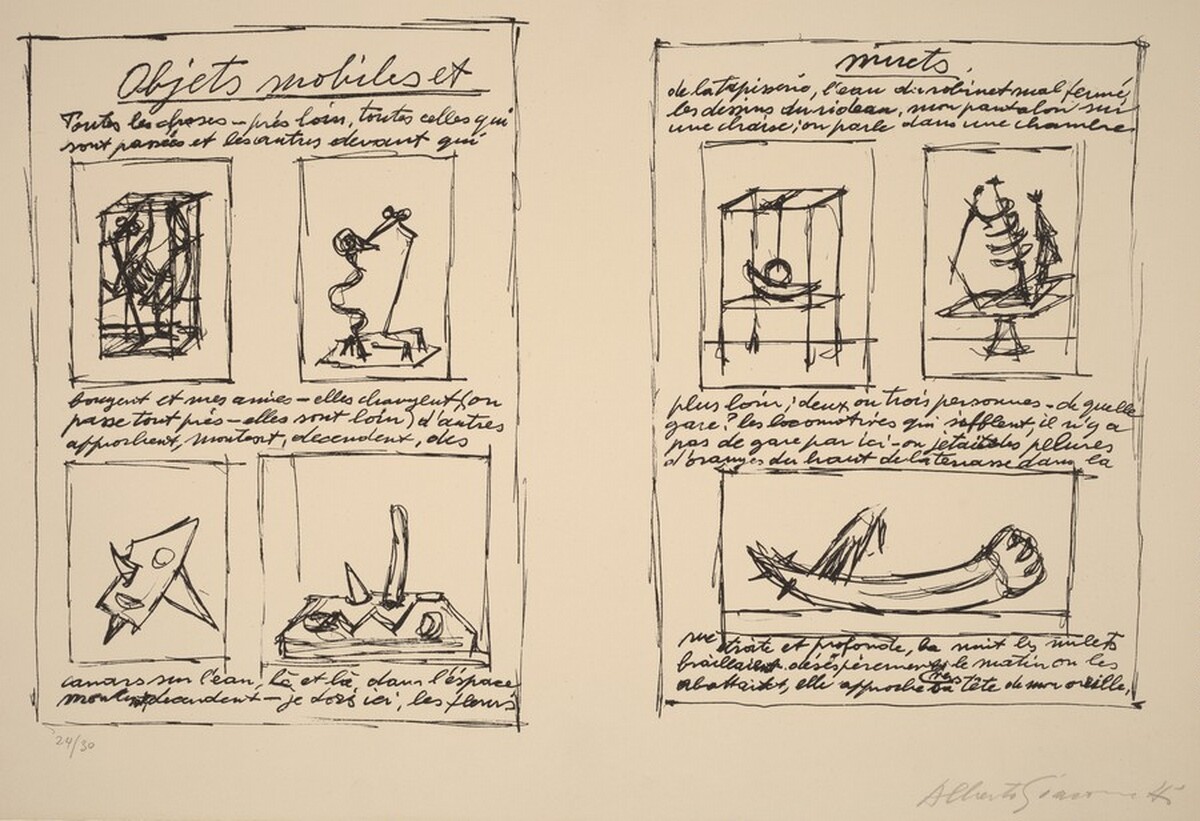 Objets mobiles et
Toutes les choses – près loin, toutes celles qui
sont passées et les autres devant qui
bougent et mes amies – elles changent (on
passe tout près – elles sont loin) d'autres
approchent, montent, decendent, des
canars sur l'eau, là et là dans l'éspace
montent decendent – je dors ici, les fleurs
24/30
muets.
de la tapisserie, l'eau du robinet mal fermé,
les dessins du rideau, mon pantalon sur
une chaise; on parle dans une chambre
plus loin; deux ou trois personnes – de quelle
gare? les locomotives qui sifflent, il n'y a
pas de gare par ici – on jetait des pelures
d'oranges du haut de la terrasse dans la
rue étroite et profonde, la nuit les mulets
braillaient désésperement vers le matin on les
abattait, elle approche sa tête de mon oreille,
Alberto Giacometti